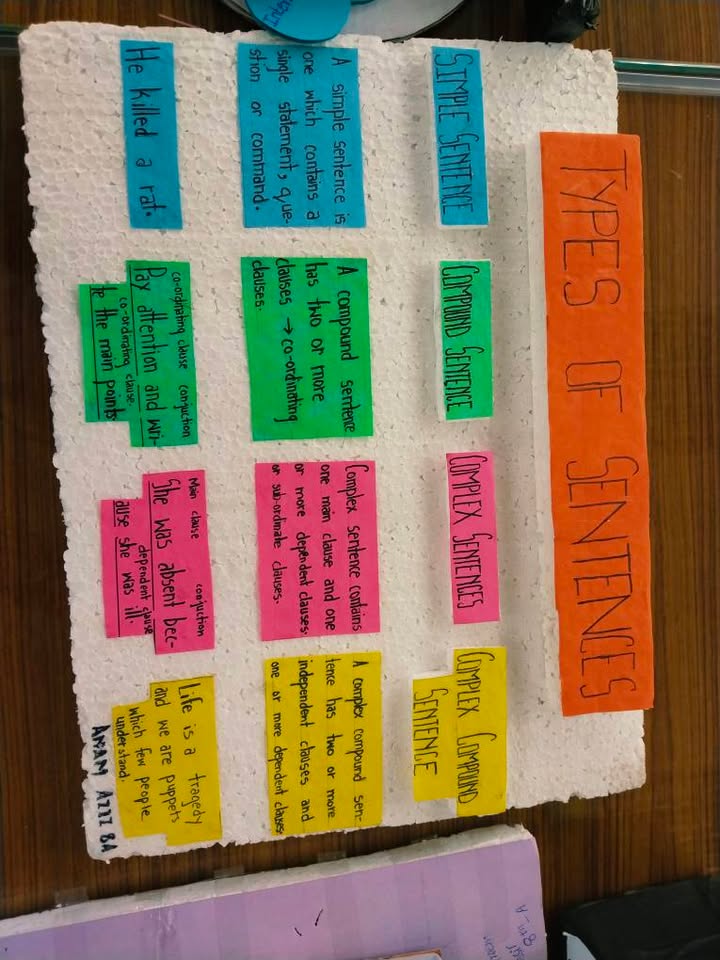 TYPES OF SENTENCES
SIMPLE SENTENCE
A simple sentence is
one which contains a
single statement, que-
stion or command.
He killed a rat.
COMPOUND SENTENCE
A compound sentence
has two or more
clauses → co-ordinating
clauses.
co-ordinating clause conjuction
Pay attention and wri-
co-ordinating clause.
te the main points
COMPLEX SENTENCES
Complex sentence contains
one main clause and one
or more dependent clauses.
or sub-ordinate clauses.
Main clause conjuction
She was absent bec-
dependent clause
ause she was ill.
COMPLEX COMPOUND
SENTENCE
A complex compound sen-
tence has two or more
independent clauses and
one or more dependent clauses.
Life is a tragedy
and we are puppets
which few people
understand.
AMAM AZIZ 8A